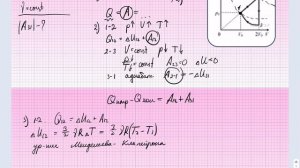 γ=const
|A₃₁|-?
Q = A = ...
2) 1-2 p↑ V↑ T↑
Q₁₂ = ΔU₁₂ + A₁₂
2-3 V=const p↓ T↓
p/T = const A₂₃=0 ΔU<0
3-1 адиабат A₃₋₁ = -ΔU₃₁
Qнагр - Qхол = A₁₂ + A₃₁
3) 1-2. Q₁₂ = ΔU₁₂ + A₁₂
ΔU₁₂ = νRΔT = νR(T₂-T₁)
ур-ние Менделеева-Клапейрона